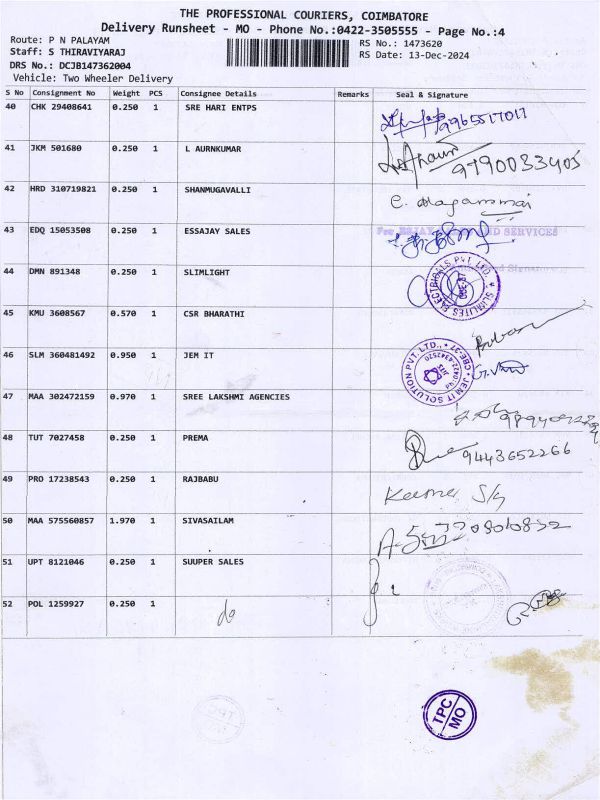 THE PROFESSIONAL COURIERS, COIMBATORE
Delivery Runsheet - MO - Phone No.:0422-3505555 - Page No.:4
Route: P N PALAYAM
RS No.: 1473620
Staff: S THIRAVIYARAJ
RS Date: 13-Dec-2024
DRS No.: DCJB147362004
Vehicle: Two Wheeler Delivery
S No Consignment No Weight PCS Consignee Details Remarks Seal & Signature
40 CHK 29408641 0.250 1 SRE HARI ENTPS 9965517017
41 JKM 501680 0.250 1 L AURNKUMAR 9790033405
42 HRD 310719821 0.250 1 SHANMUGAVALLI e. alagammai
43 EDQ 15053508 0.250 1 ESSAJAY SALES
44 DMN 891348 0.250 1 SLIMLIGHT
45 KMU 3608567 0.570 1 CSR BHARATHI
46 SLM 360481492 0.950 1 JEM IT
JEM IT SOLUTION PVT. LTD.,
47 MAA 302472159 0.970 1 SREE LAKSHMI AGENCIES
48 TUT 7027458 0.250 1 PREMA 9443652266
49 PRO 17238543 0.250 1 RAJBABU
50 MAA 575560857 1.970 1 SIVASAILAM
51 UPT 8121046 0.250 1 SUUPER SALES
52 POL 1259927 0.250 1 do
TPC
MO